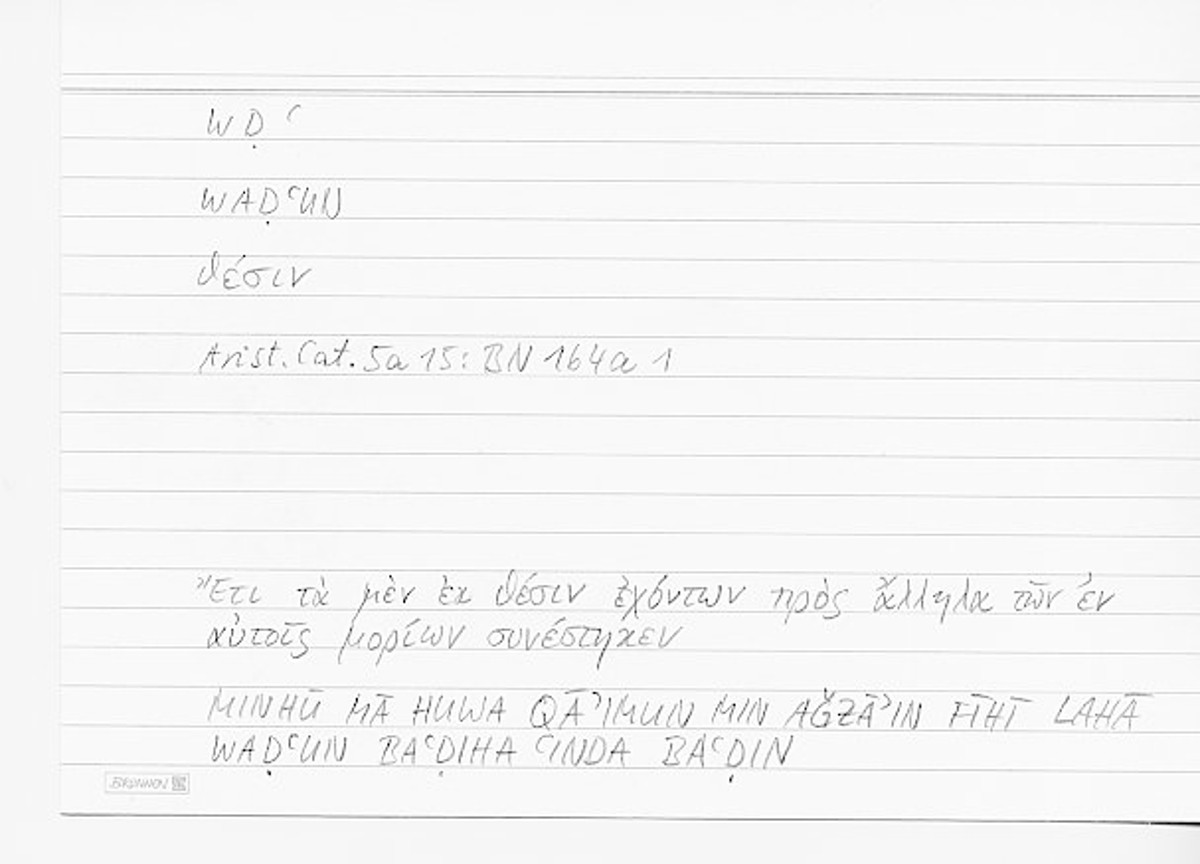 WḌʿ
WAḌʿUN
θέσιν
Arist. Cat. 5a 15: BN 164a 1
Ἔτι τὰ μὲν ἐκ θέσιν ἐχόντων πρὸς ἄλληλα τῶν ἐν
αὐτοῖς μορίων συνέστηκεν
MINHŪ MĀ HUWA QĀʾIMUN MIN AǦZĀʾIN FĪHĪ LAHĀ
WAḌʿUN BAʿḌIHA ʿINDA BAʿḌIN
BRUNNEN